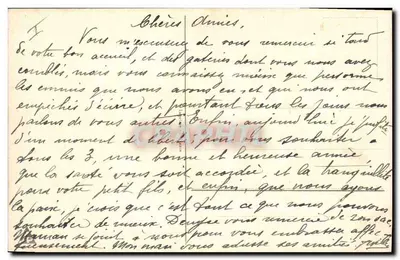 I
Chères Amies,
Vous m'excuserez de vous remercier si tard
de votre bon accueil, et des gateries dont vous nous avez
comblés, mais vous connaissez mieux que personne
les ennuis que nous avons eu, et qui nous ont
empêchés d'écrire, et pourtant tous les jours nous
parlons de vous autres. Enfin, aujourd'hui je profite
d'un moment de pour vous souhaiter à
tous les 3, une bonne et heureuse année,
que la santé vous soit accordée, et la tranquillité
pour votre petit fils, et enfin, que nous ayons
la paix, je crois que c'est tout ce que nous pouvons
souhaiter de mieux. vous remercie de son sac.
Maman se joint à nous pour vous embrasser affec-
tueusement. Mon mari vous adresse ses amitiés.